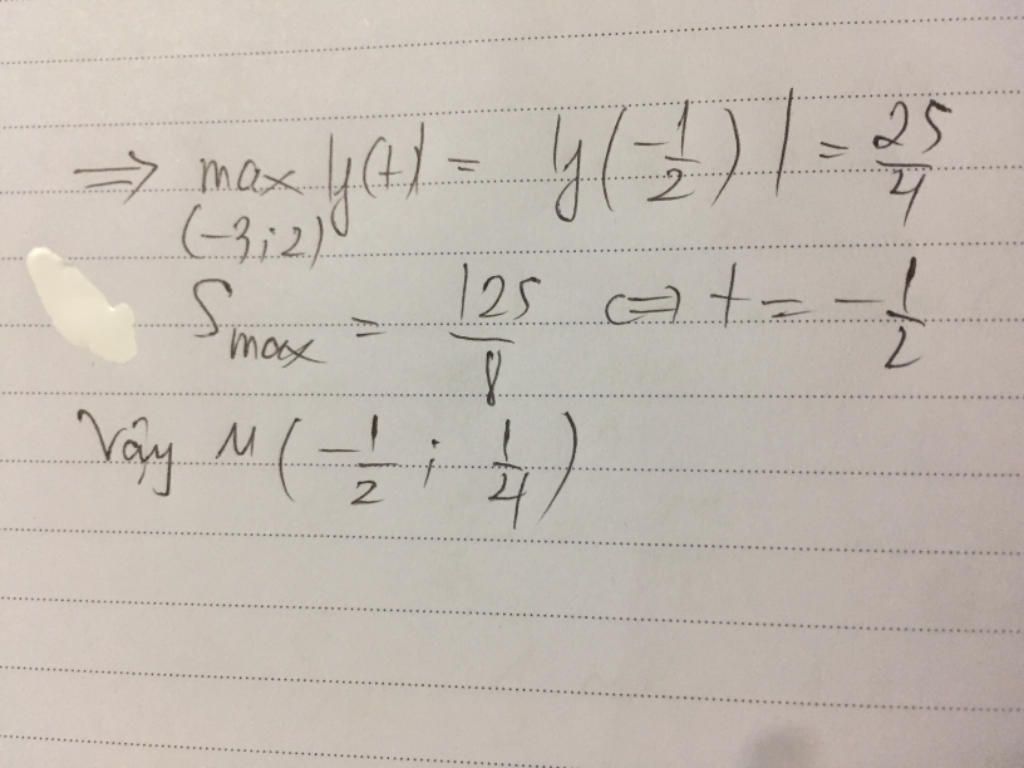 ⇒ max |y(t)| = |y(-1/2)| = 25/4
(-3;2)
S max = 125/8 ⇔ t = -1/2
Vậy M(-1/2; 1/4)